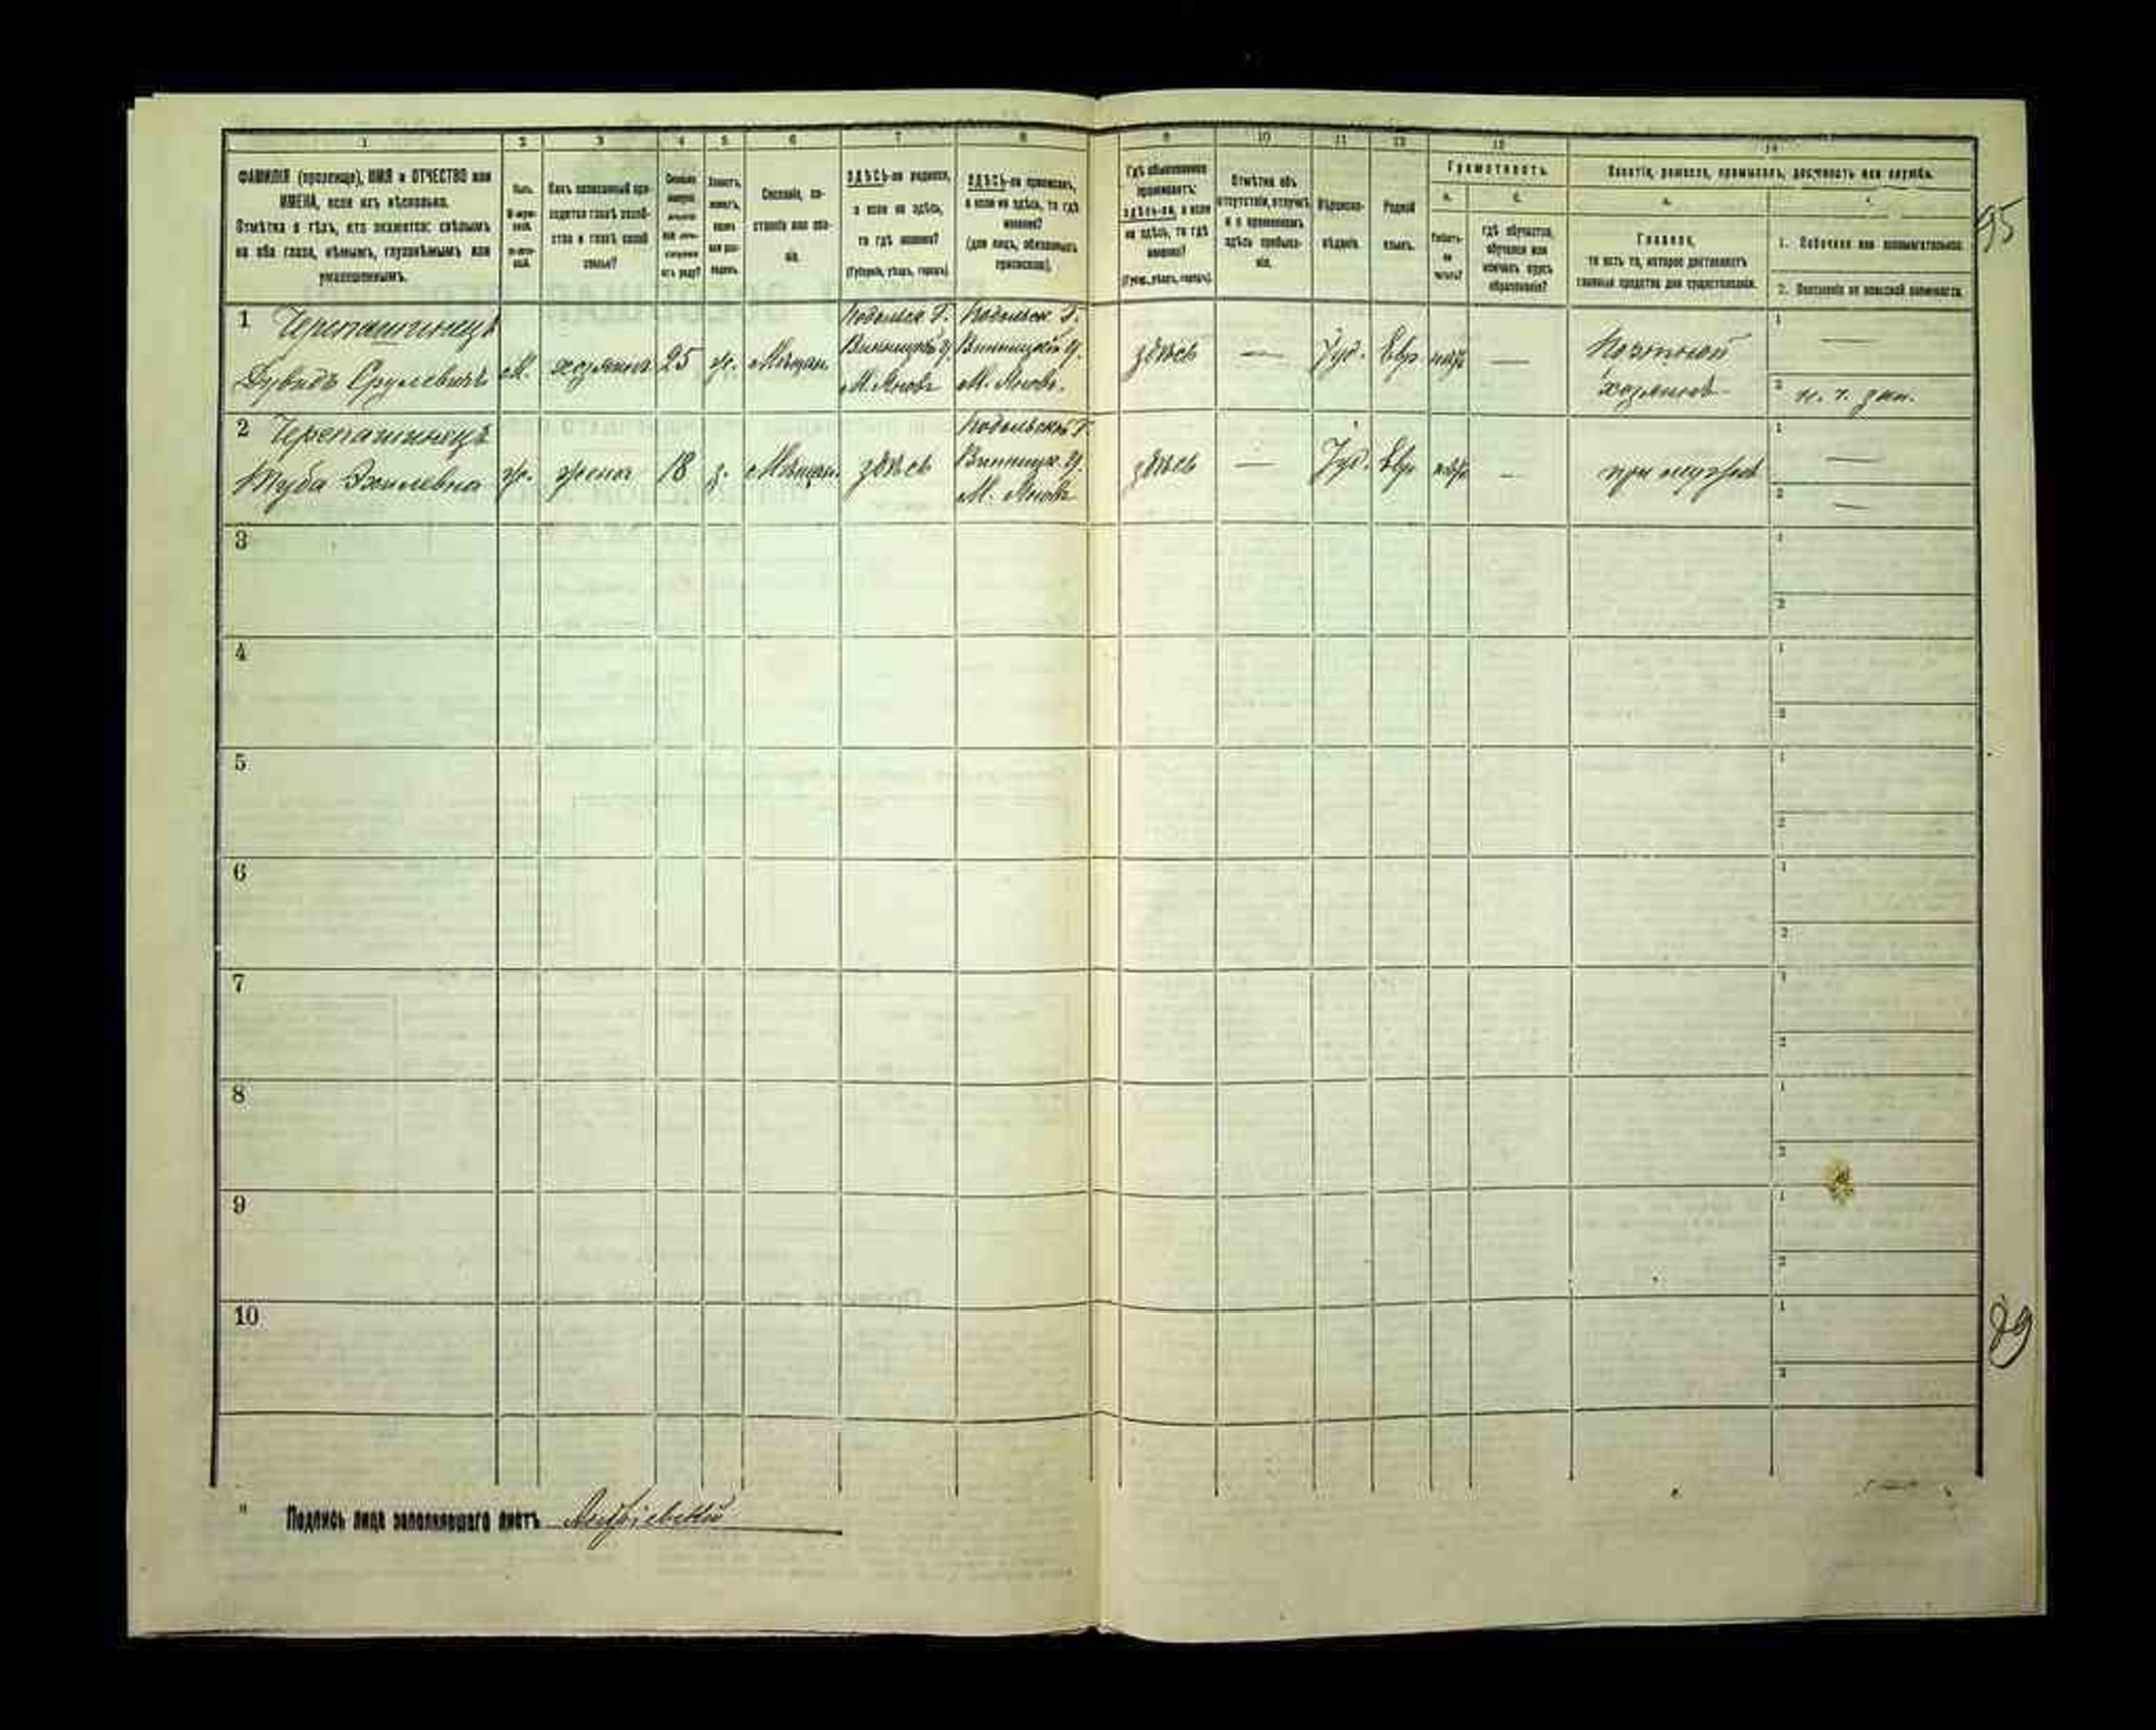 1 2 3 4 5 6 7 8 9 10 11 12 13 14
ФАМИЛІЯ (прозвище), ИМЯ и ОТЧЕСТВО или
ИМЕНА, если ихъ нѣсколько.
Отмѣтка о тѣхъ, кто окажется: слѣпымъ
на оба глаза, нѣмымъ, глухонѣмымъ или
умалишеннымъ.
Полъ.
Какъ записанный при-
ходится главѣ хозяй-
ства и главѣ своей
семьи?
Сословіе, со-
стояніе или зва-
ніе.
ЗДѢСЬ-ли родился,
а если не здѣсь,
то гдѣ именно?
(Губернія, уѣздъ, городъ).
ЗДѢСЬ-ли приписанъ,
а если не здѣсь, то гдѣ
именно?
(для лицъ, обязанныхъ
припискою).
Гдѣ обыкновенно
проживаетъ:
здѣсь-ли, а если
не здѣсь, то гдѣ
именно?
(Губер., уѣздъ, городъ).
Отмѣтка объ
отсутствіи, отлучкѣ
и о временномъ
здѣсь пребыва-
ніи.
Вѣроиспо-
вѣданіе.
Родной
языкъ.
Грамотность.
а. б.
Умѣетъ-
ли
читать?
гдѣ обучается,
обучался или
кончилъ курсъ
образованія?
Занятіе, ремесло, промыселъ, должность или служба.
Главное,
то есть то, которое доставляетъ
главныя средства для существованія.
1. Побочное или вспомогательное.
2. Положеніе по воинской повинности.
95
1 Черепашинецъ
Дувидъ Срулевичъ
М. хозяинъ 25 ж. Мѣщан.
Подольск Г.
Винницкій У.
М. Яновъ
Подольск Г.
Винницкій У.
М. Яновъ.
здѣсь — Іуд. Евр —
Портной
хозяинъ
1 —
2
2 Черепашинецъ
Туба
ж. жена 18 з. Мѣщан. здѣсь
Подольской Г.
Винницк. У.
М. Яновъ
здѣсь — Іуд. Евр —
при мужѣ
1 —
2 —
3 1
2
4 1
2
5 1
2
6 1
2
7 1
2
8 1
2
9 1
2
10 1
2
29
Подпись лица заполнявшаго листъ